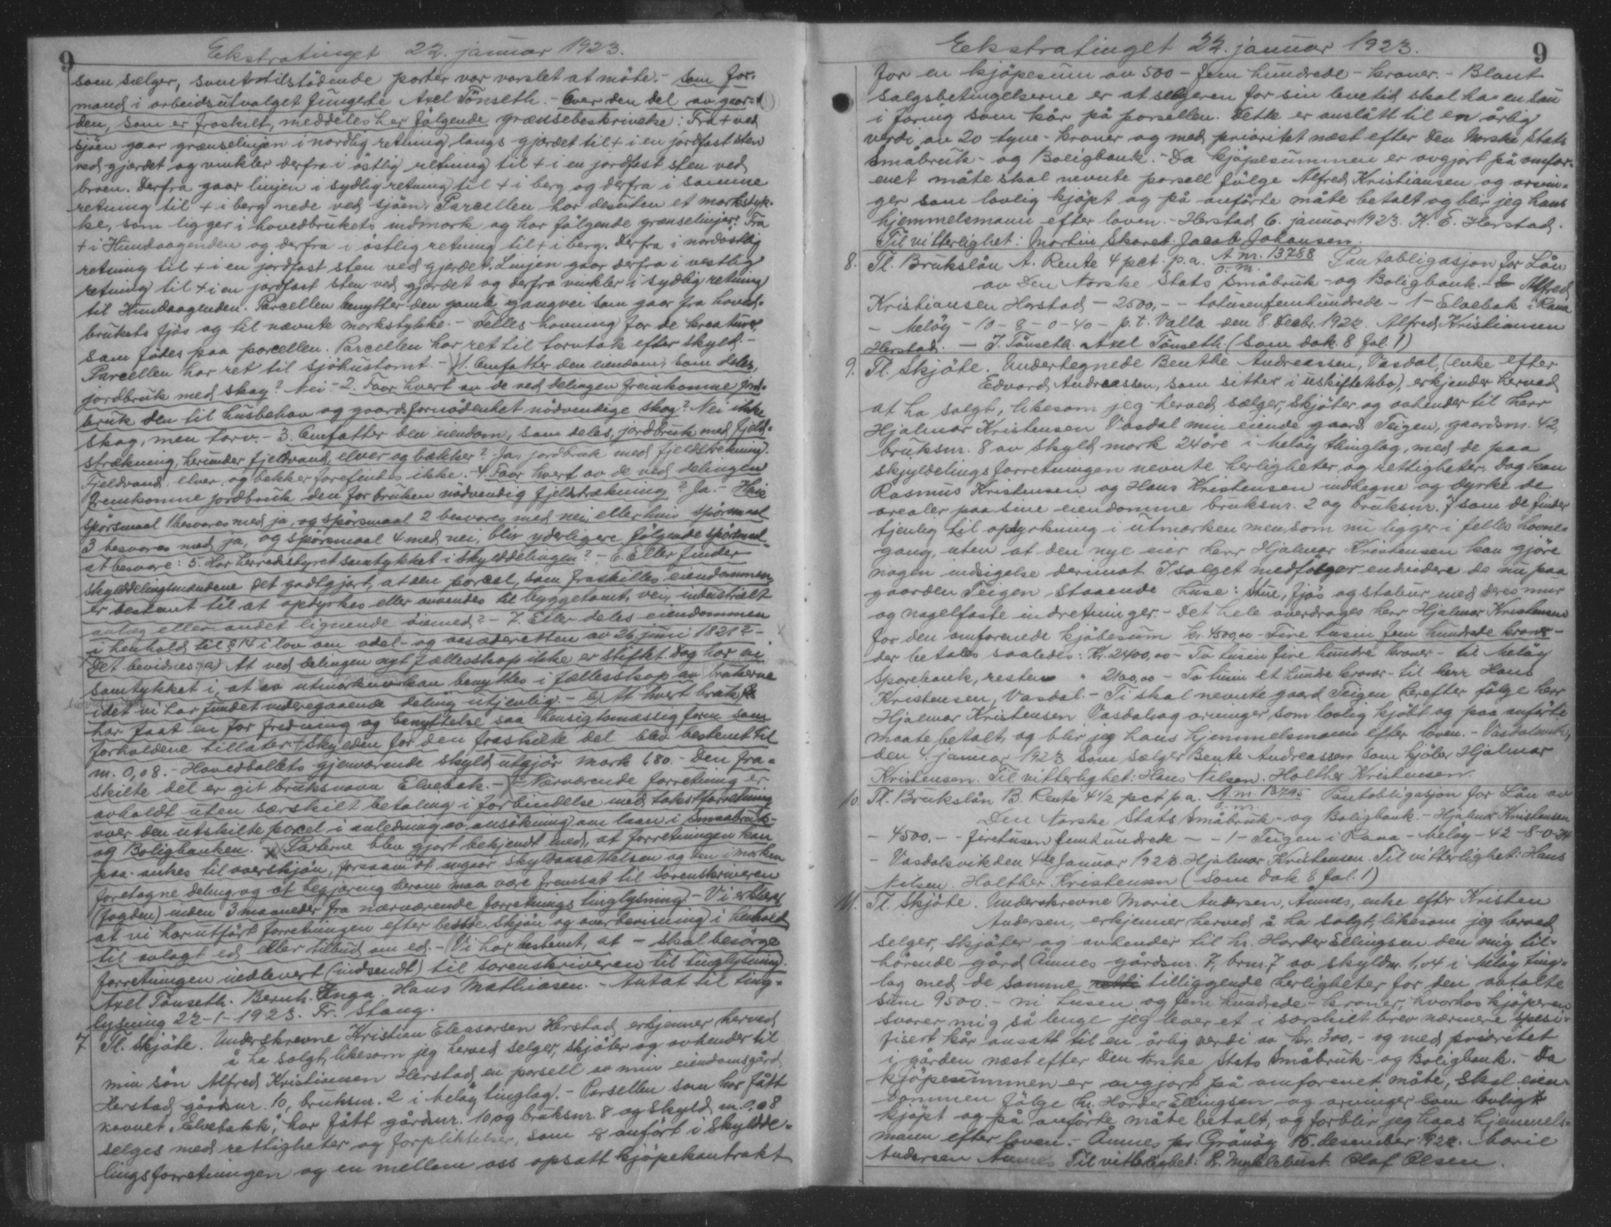 9
Ekstratinget 22. januar 1923.
som sælger, samt tilstötende parter var varslet at möte. - Som for-
mand i arbeidsutvalget fungerte Axel Tönseth. - Over den del av gaar-
den, som er fraskilt, meddeles her fölgende grænsebeskrivelse: Fra + ved
sjöen gaar grænselinjen i nordlig retning langs gjærdet til + i en jordfast sten
ved gjærdet og vinkler derfra i östlig retning til + i en jordfast sten ved
broen. Derfra gaar linjen i sydlig retning til + i berg og derfra i samme
retning til + i berg nede ved sjöen. Parcellen har desuten et markstyk-
ke, som ligger i hovedbrukets indmark og har fölgende grænselinjer: Fra
+ i Hundaagenden og derfra i östlig retning til + i berg. Derfra i nordostlig
retning til + i en jordfast sten ved gjerdet. Linjen gaar derfra i vestlig
retning til + i en jordfast sten ved gjærdet og derfra vinkler i sydlig retning
til Hundaagenden. Parcellen benytter den gamle gangvei som gaar fra hoved-
brukets fjös og til nævnte markstykke. - Felles havning for de kreaturer
som födes paa parcellen. Parcellen har ret til torvtak efter skyld. -
Parcellen har ret til sjöhustomt. - 1. Omfatter den eiendom, som deles,
jordbruk med skog? Nei - 2. Faar hvert av de ved delingen fremkomne jord-
bruk den til husbehov og gaardsfornödenhet nödvendige skog? Nei ikke
skog, men torv. - 3. Omfatter den eiendom, som deles, jordbruk med fjeld-
strækning, herunder fjeldvand, elver og bækker? Ja, jordbruk med fjeldstrekning.
Fjeldvand, elver og bekker forefindes ikke. - 4. Faar hvert av de ved delingen
fremkomne jordbruk den for bruken nödvendig fjeldstrækning? Ja. - Hvis
spörsmaal 1 besvares med ja, og spörsmaal 2 besvares med nei, eller hvis spörsmaal
3 besvares med ja, og spörsmaal 4 med nei, blir yderligere fölgende spörsmaal
at besvare: 5. Har herredsstyret samtykket i skylddelingen? - 6. Eller finder
skylddelingsmændene det godtgjort, at den parcel, som fraskilles eiendommen,
er bestemt til at opdyrkes eller anvendes til byggetomt, vei, industrielt
anlæg eller andet lignende öiemed? - 7. Eller deles eiendommen
i henhold til § 14 i lov om odel- og aasædesretten av 26 juni 1821? -
Det bevidnes: a) At ved delingen nyt fællesskap ikke er stiftet dog har vi
samtykket i, at av utmarken kan benyttes i fællesskap av brukerne
idet vi har fundet videregaaende deling utjenlig - b) At hvert bruk
har faat en for fredning og benyttelse saa hensigtsmæssig form som
forholdene tillater. Skylden for den fraskilte del blev bestemt til
m. 0,08. - Hovedböllets gjenværende skyld utgjör mark 1.80. - Den fra-
skilte del er git bruksnavn Elvebak. - Nærværende forretning er
avholdt uten særskilt betaling i forbindelse med takstforretning
over den utskilte parcel i anledning av ansökning om laan i Smaabruk-
og Boligbanken. - Parterne blev gjort bekjendt med, at forretningen kan
paa-ankes til overskjön, forsaavidt angaar skyldansættelsen og den i marken
foretagne deling og at begjæring herom maa være fremsat til sorenskriveren
(fogden) inden 3 maaneder fra nærværende forretnings tinglysning. - Vi erklærer
at vi har utfört forretningen efter bedste skjön og overbevisning i henhold
til avlagt ed eller tilbud om ed. - Vi har bestemt, at - skal besörge
forretningen indlevert (indsendt) til sorenskriveren til tinglysning.
Axel Tönseth. Bernh. Enga. Hans Mathiasen. - Antat til ting-
lysning 22-1-1923. Fr. Stang.
7 Tl. Skjöte. Underskrevne Kristian Eleasarsen Herstad erkjenner herved
å ha solgt, likesom jeg herved selger, skjöter og avhender til
min sön Alfred Kristiansen Herstad en porsell av min eiendomsgård,
Herstad gårdsnr. 10, bruksnr. 2 i Melöy tinglag. - Porsellen som har fått
navnet Elvebakk, har fått gårdsnr. 10 og bruksnr 8 og skyld m. 0,08
selges med rettigheter og forpliktelser, som er anfört i skyldde-
lingsforretningen og en mellem oss opsatt kjöpekontrakt
9
Ekstratinget 22. januar 1923.
for en kjöpesum av 500 - fem hundrede - kroner. - Blant
salgsbetingelserne er at selgeren for sin levetid skal ha en sau
i foring som kår på porsellen. Dette er anslått til en årlig
verdi av 20 - tyve - kroner og med prioritet næst efter Den Norske Stats
Småbruk- og Boligbank. - Da kjöpesummen er avgjort på omfor-
enet måte skal nevnte porsell fölge Alfred Kristiansen og arvin-
ger som lovlig kjöpt og på anförte måte betalt og blir jeg hans
hjemmelsmann efter loven. - Herstad 6. januar 1923. K. E. Herstad.
Til vitterlighet: Martin Skaret. Jacob Johansen.
8. Tl. Brukslån A. Rente 4 pct. p.a. A m. 13758 Pantobligasjon for Lån
o.m.
av Den Norske Stats Småbruk- og Boligbank. - Alfred
Kristiansen Herstad - 2500,- - totusenfemhundrede - 1 - Elvebak i Rana
- Melöy - 10 - 8 - 0-40 - p.t. Valla den 8 Decbr. 1922. Alfred Kristiansen
Herstad. - J. Tönseth. Axel Tönseth. (Som dok. 8 fol. 1)
9. Tl. Skjöte. Undertegnede Benthe Andreassen, Vasdal, (enke efter
Edvard Andreassen, som sitter i uskiftetbo) erkjender herved
at ha solgt, likesom jeg herved sælger, skjöter og avhender til herr
Hjalmar Kristensen Vasdal min eiende gaard Teigen, gaardsnr. 42,
bruksnr. 8 av skyld mark 24 öre i Melöy thinglag, med de paa
skyldelingsforretningen nevnte herligheter og rettigheter. Dog kan
Rasmus Kristensen og Hans Kristensen indhegne og dyrke de
arealer paa sine eiendomme bruksnr. 2 og bruksnr. 7 som de finder
tjenlig til opdyrkning i utmarken men som nu ligger i felles havne-
gang, uten at den nye eier herr Hjalmar Kristensen kan gjöre
nogen indsigelse derimot. I salget medfölger endvidere de nu paa
gaarden Teigen staaende huse: stue, fjös og stabur med deres mur
og nagelfaste indretninger. - Det hele overdrages herr Hjalmar Kristensen
for den omforenede kjöbesum kr. 4500,00 - Fire tusen fem hundrede kroner -
der betales saaledes: Kr. 2400,00 - To tusen fire hundre kroner - til Melöy
Sparebank, resten " 2100,00 - To tusen et hundre kroner - til herr Hans
Kristensen, Vasdal. - Ti skal nevnte gaard Teigen herefter fölge herr
Hjalmar Kristensen Vasdal og arvinger som lovlig kjöpt og paa anförte
maate betalt, og blir jeg hans hjemmelsmann efter loven. - Vasdalsvik,
den 4. januar 1923 Som sælger Bente Andreassen Som kjöber Hjalmar
Kristensen. Til vitterlighet: Hans Nilsen. Holther Kristensen.
10. Tl. Brukslån B. Rente 4 1/2 pct p.a. A m. 13795 Pantobligasjon for Lån av
o.m.
Den Norske Stats Småbruk- og Boligbank. - Hjalmar Kristensen
- 4500,- - firetusen femhundrede - 1 - Teigen i Rana - Melöy - 42 - 8 - 0-24
- Vasdalsvik den 4de Januar 1923. Hjalmar Kristensen. Til vitterlighet: Hans
Nilsen. Holther Kristensen (Som dok. 8 fol. 1)
11. Tl. Skjöte. Underskrevne Marie Andersen, Ånnes, enke efter Kristen
Andersen, erkjenner herved å ha solgt, likesom jeg herved
selger, skjöter og avhender til hr. Hardor Ellingsen den mig til-
hörende gård Ånnes gårdsnr. 7, brnr. 7 av skyldm. 1,04 i Melöy ting-
lag med de samme tilliggende herligheter for den avtalte
sum 9500. - ni tusen og fem hundrede - kroner, hvorhos kjöperen
svarer mig så lenge jeg lever et i særskilt brev nærmere spesi-
fisert kår ansatt til en årlig verdi av kr. 300,- og med prioritet
i gården næst efter Den Norske Stats Småbruk- og Boligbank. - Da
kjöpesummen er avgjort på omforenet måte, skal eien-
dommen fölge hr. Hardor Ellingsen og arvinger som lovlig
kjöpt og på anförte måte betalt, og forblir jeg hans hjemmels-
mann efter loven. Ånnes pr. Grönöy 16. desember 1922. Marie
Andersen Aannes Til vitterlighet: R. Myklebust Olaf Olsen.